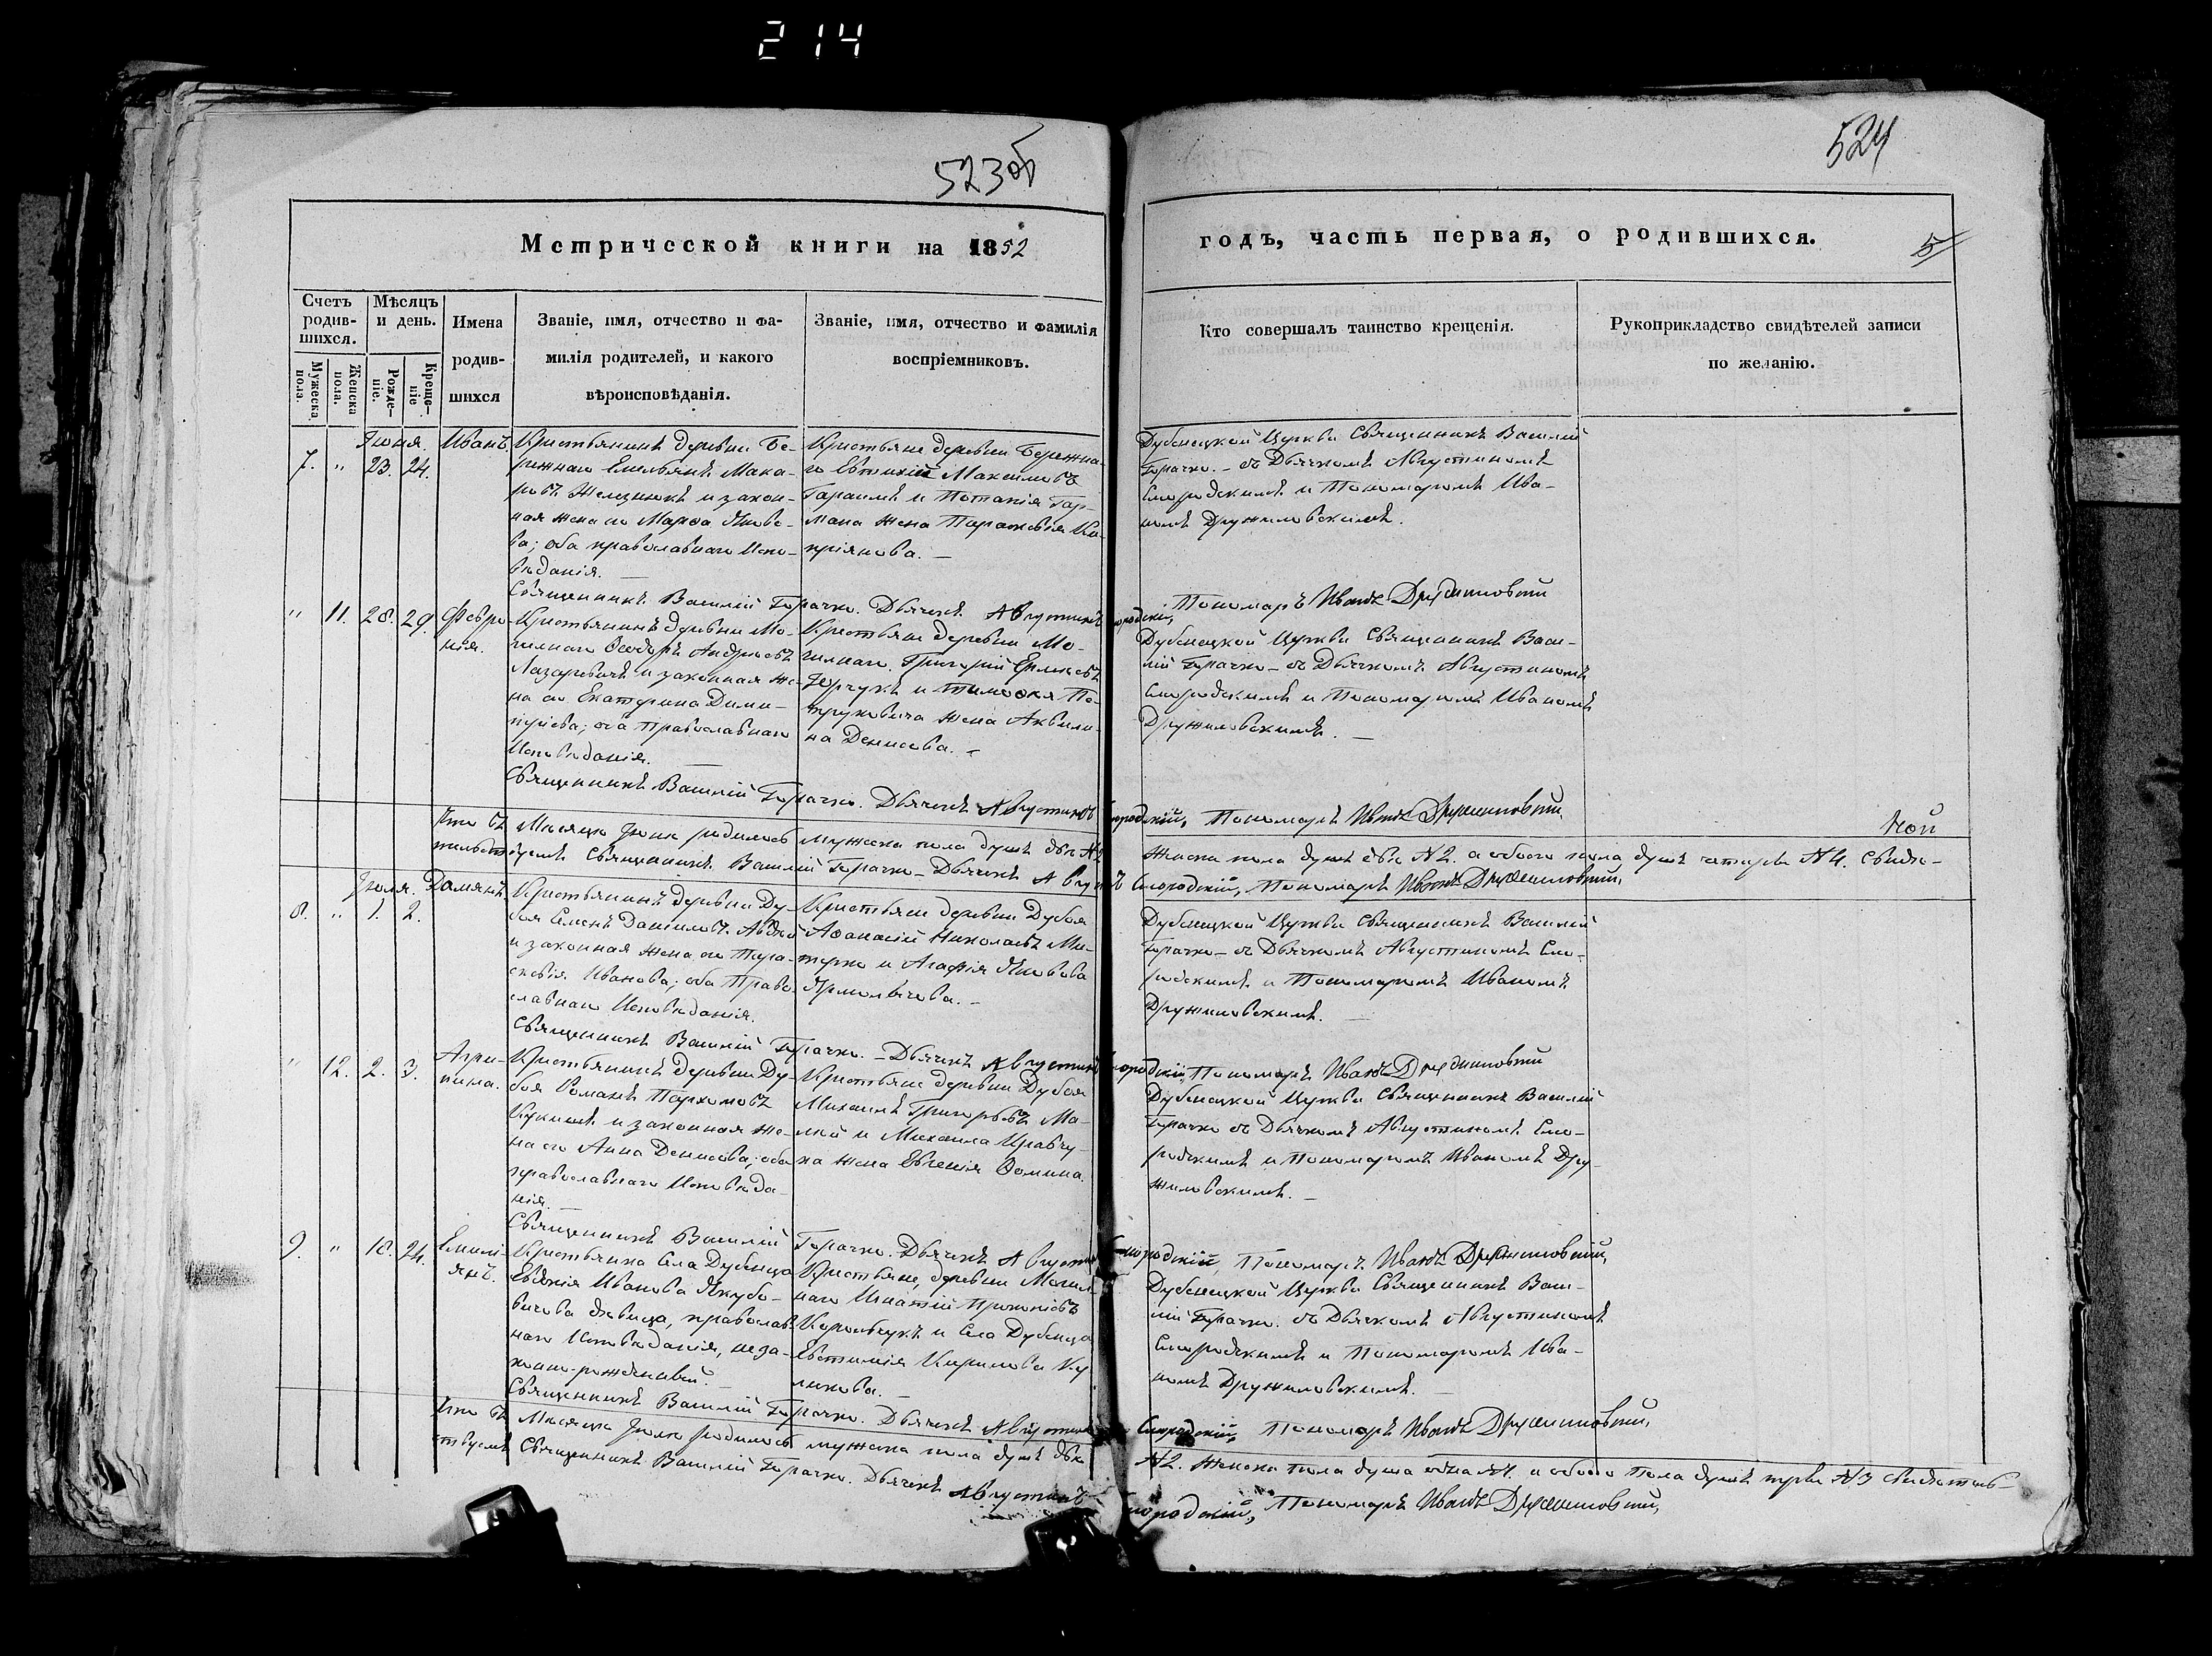 214
523об
524
Метрической книги на 1852
годъ, часть первая, о родившихся.
5
Счетъ родившихся.
Мужеска пола.
Женска пола.
Мѣсяцъ и день.
Рожденіе.
Крещеніе
Имена родившихся
Званіе, имя, отчество и фамилія родителей, и какого вѣроисповѣданія.
Званіе, имя, отчество и фамилія воспріемниковъ.
Кто совершалъ таинство крещенія.
Рукоприкладство свидѣтелей записи по желанію.
Іюня
7. " 23. 24.
Иванъ
Крестьянинъ деревни Бе-
режнаго Емельянъ Мака-
ровъ и закон-
ная жена его Марѳа Яковле-
ва; оба православнаго Испо-
вѣданія.
Крестьяне деревни Бережна-
го Евтихій Максимовъ
Герасимъ и Потапія Гар-
маша жена Параскевія Ки-
пріянова.
Дубенецкой Церкви Священникъ Василій
Горачко. съ Дьячкомъ Августиномъ
Смородскимъ и Пономаремъ Ива-
номъ Дружиловскимъ.
Священникъ Василій Горачко. Дьячекъ Августинъ Смородскій, Пономарь Иванъ Дружиловскій
" 11. 28. 29.
Февро-
нія.
Крестьянинъ деревни Мо-
гилнаго Ѳеодоръ Андреевъ
Лазаревичъ и законная же-
на его Екатерина Дими-
тріева; оба Православнаго
Исповѣданія.
Крестьяне деревни Мо-
гилнаго Григорій Ермаковъ
и Тимоѳея Пе-
труковича жена Акили-
на Денисова.
Дубенецкой Церкви Священникъ Васи-
лій Горачко съ Дьячкомъ Августиномъ
Смородскимъ и Пономаремъ Иваномъ
Дружиловскимъ.
Священникъ Василій Горачко. Дьячекъ Августинъ Смородскій, Пономарь Иванъ Дружиловскій
Итого въ Мѣсяцѣ Іюнѣ родилось мужеска пола душъ двѣ №2
Женска пола душъ двѣ №2. а обоего пола душъ четыре №4. Свидѣ-
тельствуемъ Священникъ Василій Горачко Дьячекъ Августинъ Смородскій, Пономарь Иванъ Дружиловскій,
Іюля.
8. " 1. 2.
Даміянъ
Крестьянинъ деревни Ду-
боя Семенъ Даниловъ Авдей
и законная жена его Пара-
скевія Иванова; оба Право-
славнаго Исповѣданія.
Крестьяне деревни Дубоя
Аѳанасій Николаевъ Ми-
терко и Агафія Яковлева
Ярмоличова.
Дубенецкой Церкви Священникъ Василій
Горачко съ Дьячкомъ Августиномъ Смо-
родскимъ и Пономаремъ Иваномъ
Дружиловскимъ.
Священникъ Василій Горачко. Дьячекъ Августинъ Смородскій, Пономарь Иванъ Дружиловскій
" 12. 2. 3.
Агри-
пина.
Крестьянинъ деревни Ду-
боя Романъ Пархомовъ
Кукишъ и законная же-
на его Анна Денисова; оба
православнаго Исповѣда-
нія.
Крестьяне деревни Дубоя
Михаилъ Григорьевъ Ма-
лей и Михаила Кравчу-
ка жена Евгенія Ѳомина.
Дубенецкой Церкви Священникъ Василій
Горачко съ Дьячкомъ Августиномъ Смо-
родскимъ и Пономаремъ Иваномъ Дру-
жиловскимъ.
Священникъ Василій Горачко. Дьячекъ Августинъ Смородскій, Пономарь Иванъ Дружиловскій,
9. " 18. 24.
Емилі-
янъ.
Крестьянка Села Дубенца
Евдокія Иванова Якубо-
вичова дѣвица, православ-
наго Исповѣданія, неза-
конно-рожденный.
Крестьяне, деревни Могил-
наго Игнатій Прокопіевъ
и Села Дубенца
Евтимія Кирилова Ку-
ликова.
Дубенецкой Церкви Священникъ Васи-
лій Горачко. съ Дьячкомъ Августиномъ
Смородскимъ и Пономаремъ Ива-
номъ Дружиловскимъ.
Священникъ Василій Горачко. Дьячекъ Августинъ Смородскій, Пономарь Иванъ Дружиловскій,
Итого въ Мѣсяцѣ Іюлѣ родилось мужеска пола душъ двѣ
№2. Женска пола душа одна №1. а обоего пола душъ три №3 свидѣтель-
ствуемъ Священникъ Василій Горачко. Дьячекъ Августинъ Смородскій, Пономарь Иванъ Дружиловскій,